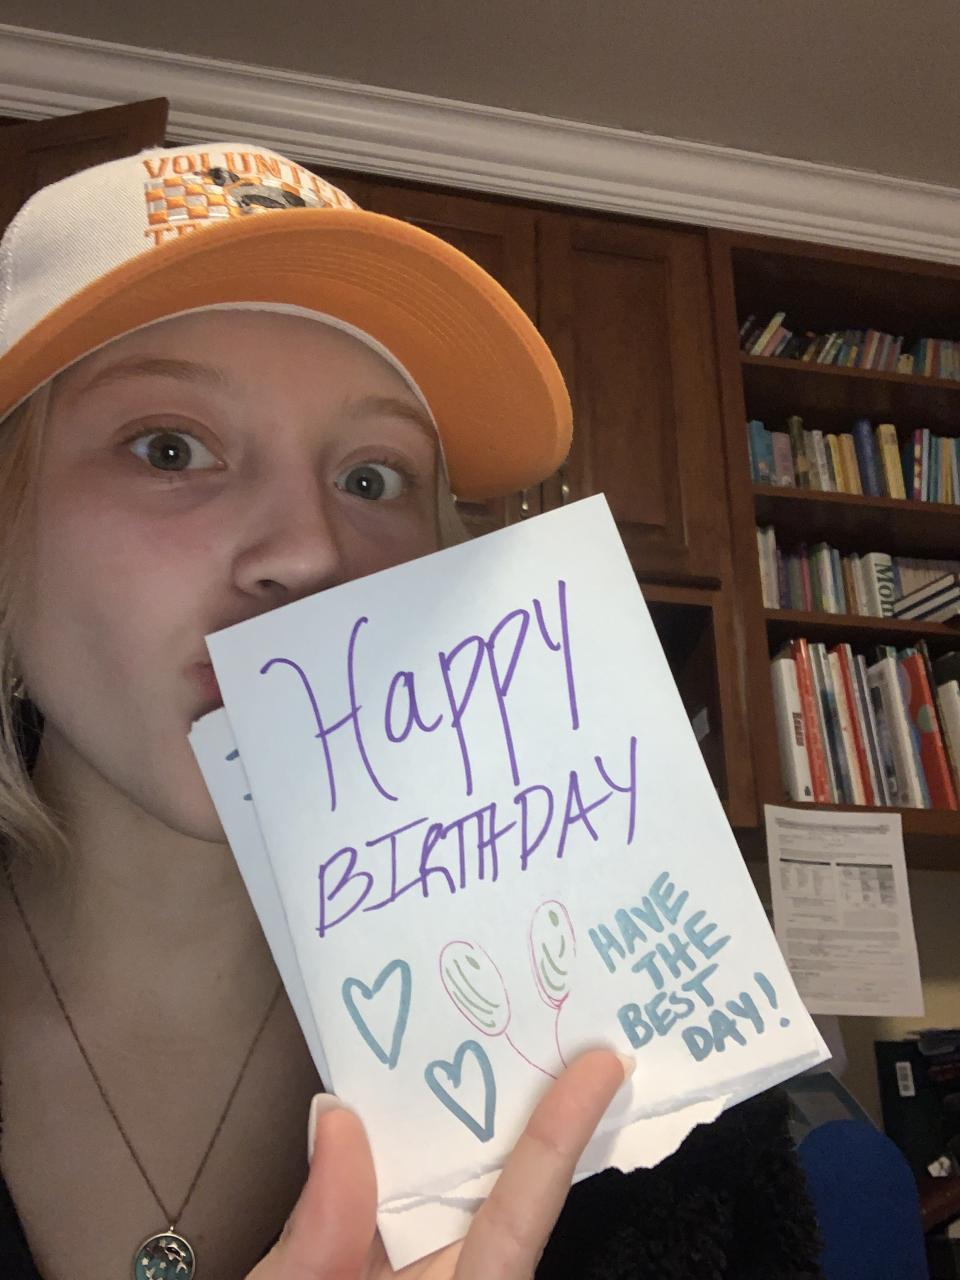 VOLUNTE
Happy
BIRTHDAY
HAVE
THE
BEST
DAY!